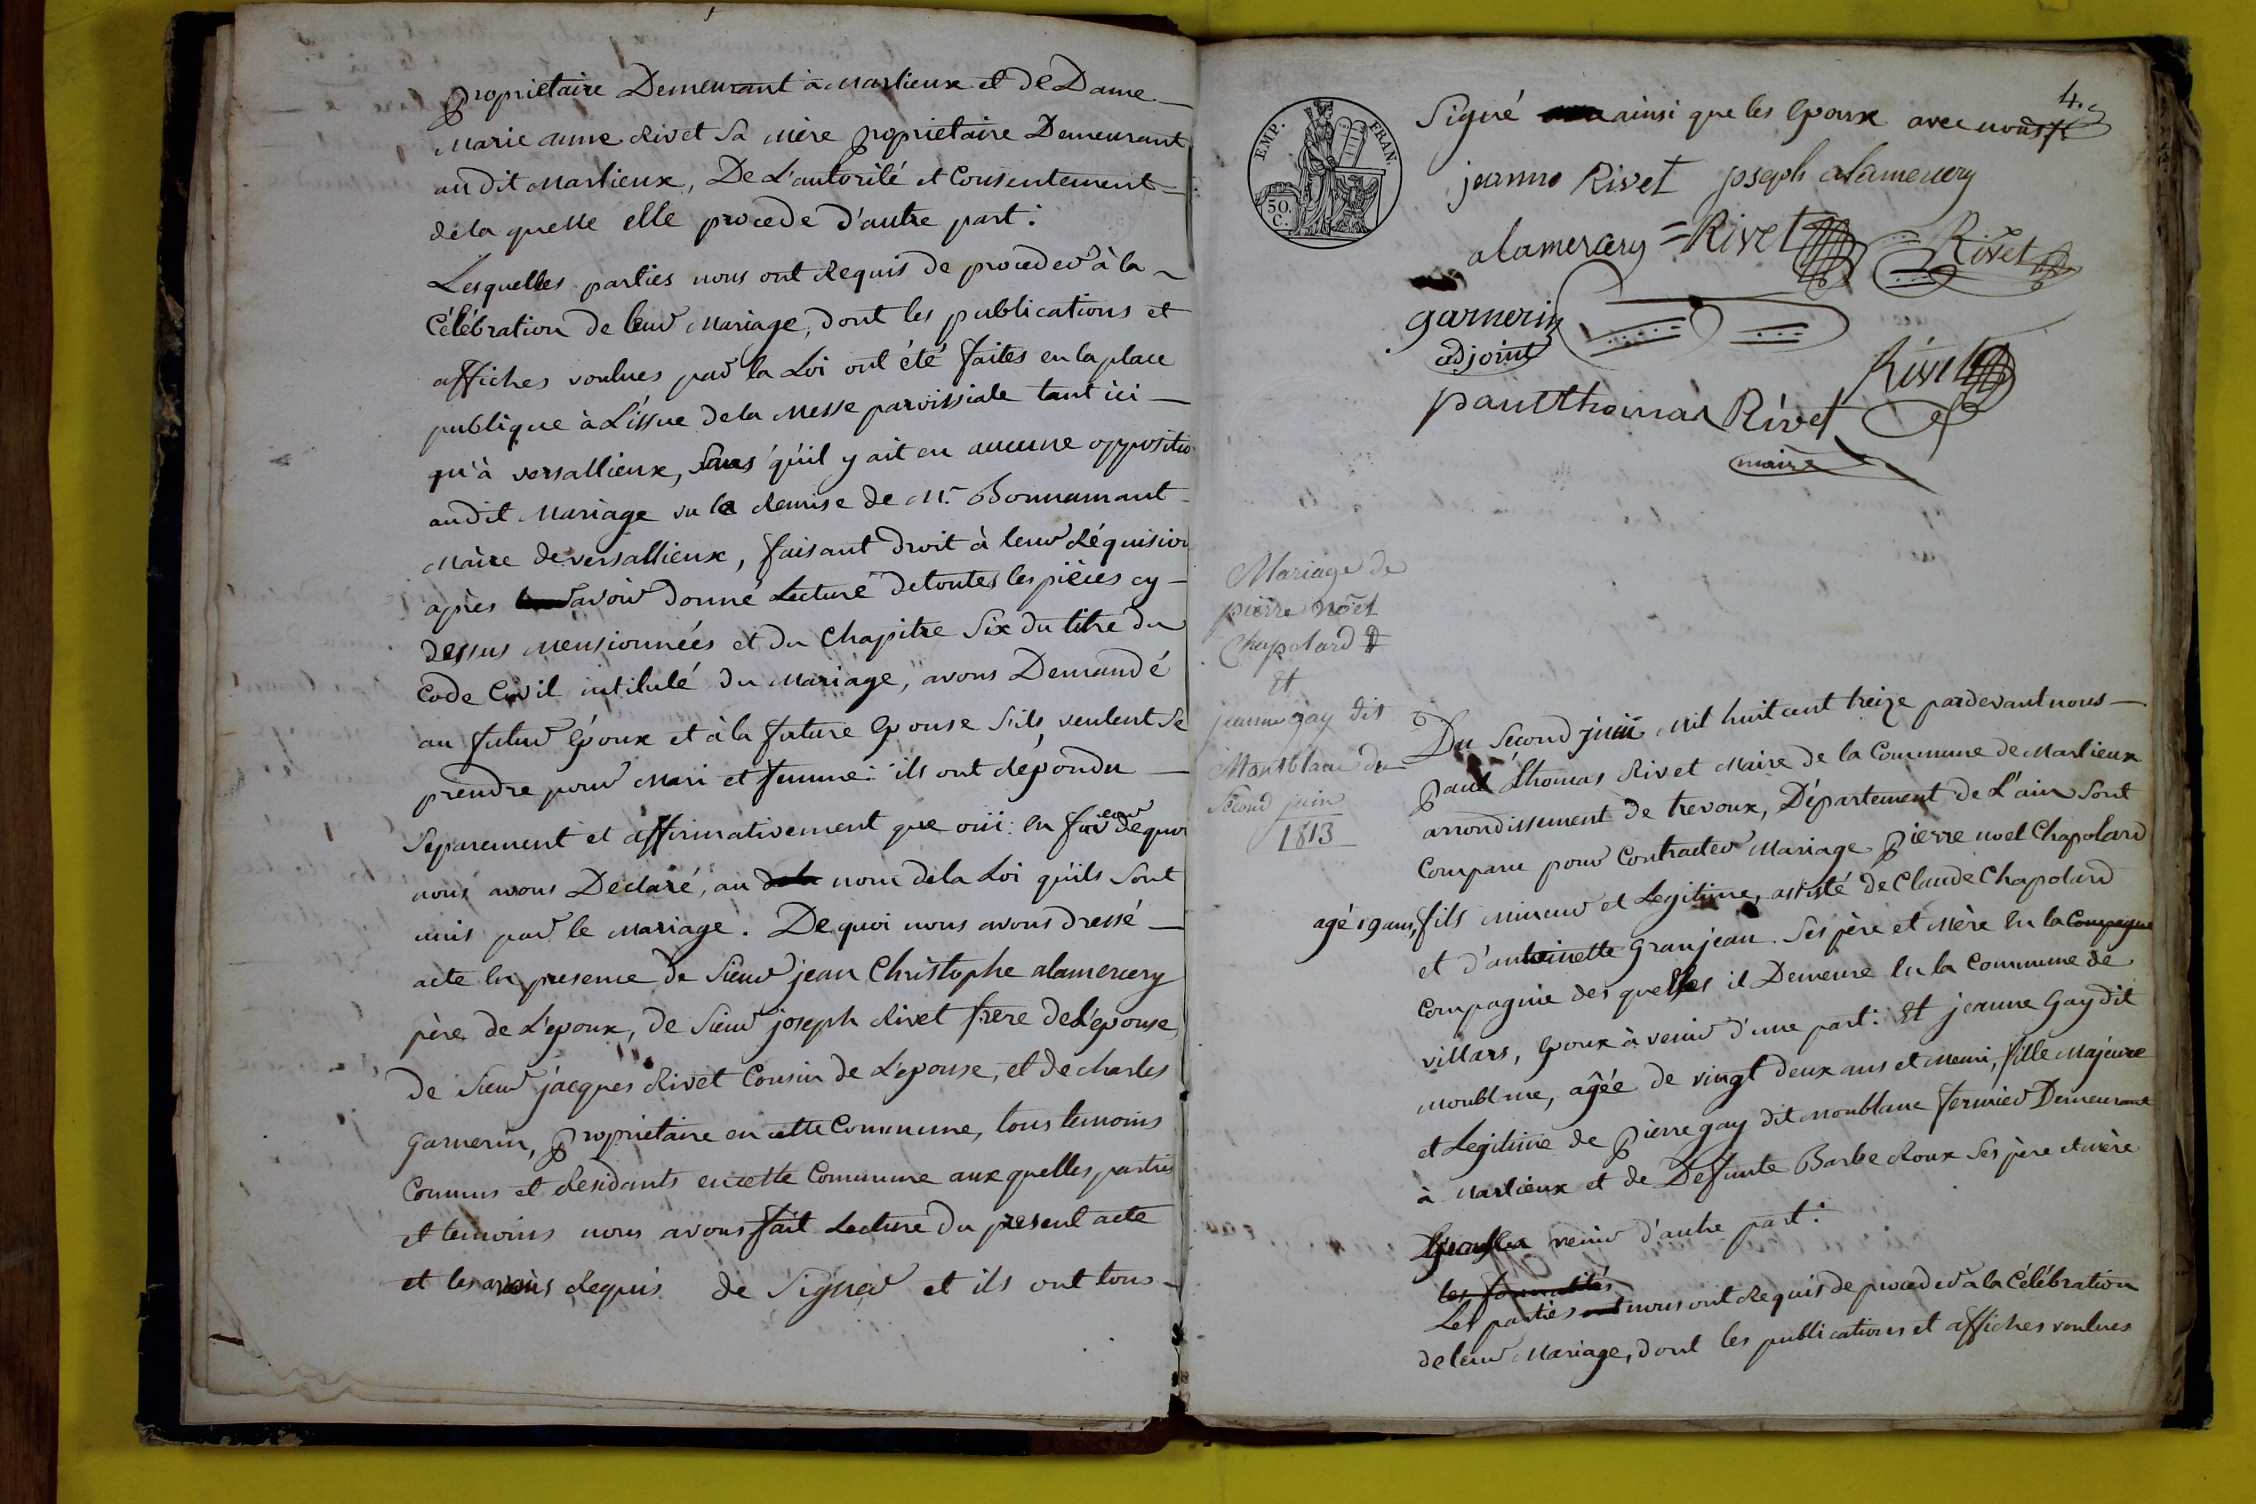 proprietaire Demeurant à Marlieux et de Dame
Marie anne Rivet sa mère proprietaire Demeurant
audit Marlieux, De L'autorité et Consentement
de la quelle elle procede d'autre part.
Lesquelles parties nous ont Requis de proceder à la
Célébration de leur Mariage, dont les publications et
affiches voulues par la Loi ont été faites en la place
publique à L'issue de la Messe paroissiale tant ici
qu'à versallieux, sans qu'il y ait eu aucune oppositio
audit Mariage vu la Remise de Mr. Bonnamant
Maire de versallieux, faisant droit à leur Réquision
après avoir donné Lecture de toutes les pièces cy
dessus Mensionnées et du Chapitre Six du titre du
Code Civil intitulé du Mariage, avons Demandé
au futur époux et à la future Epouse s'ils veulent se
prendre pour Mari et femme: ils ont Répondu
Séparement et affirmativement que oüi: en foi de quoi
nous avons Déclaré, au nom de la Loi qu'ils sont
unis par le Mariage. De quoi nous avons dressé
acte en presence de Sieur jean Christophe alamercery
père de L'epoux, de Sieur joseph Rivet frère de L'epouse,
de Sieur jacques Rivet Cousin de L'epouse, et de charles
Garnerin, proprietaire en cette Commune, tous temoins
Connus et Residants en cette Commune aux quelles parties
et temoins nous avons fait Lecture du present acte
et les avons Requis de Signer et ils ont tous
4.
Signé ainsi que les Epoux avec nous
jeanne Rivet joseph alamercery
alamercery = Rivet Rivet
garnerin
adjoint
Rivet
paul thomas Rivet
maire
Mariage de
pierre noël
Chapolard
Et
jeanne gay dit
Montblanc du
Second juin
1813
Du Second juin Mil huit cent treize pardevant nous
paul Thomas Rivet Maire de la Commune de Marlieux
arrondissement de trevoux, Département de L'ain sont
Comparu pour Contracter Mariage pierre noel Chapolard
agé 19 ans, fils Mineur et Legitime, assisté de Claude Chapolard
et d'antoinette Granjean. Ses père et Mère En la Compagnie
Compagnie des quelles il Demeure En la Commune de
villars, Epoux à venir d'une part: Et jeanne Gay dit
Moublanc, agée de vingt deux ans et Demi, fille Majeure
et Legitime de pierre gay dit Moublanc fermier Demeurant
à Marlieux et de Defunte Barbe Roux Ses père et mère
venir d'autre part:
les formalités
Les parties nous ont Requis de proceder à la Célébration
de leur Mariage, dont les publications et affiches voulues
EMP. FRAN.
50.
C.